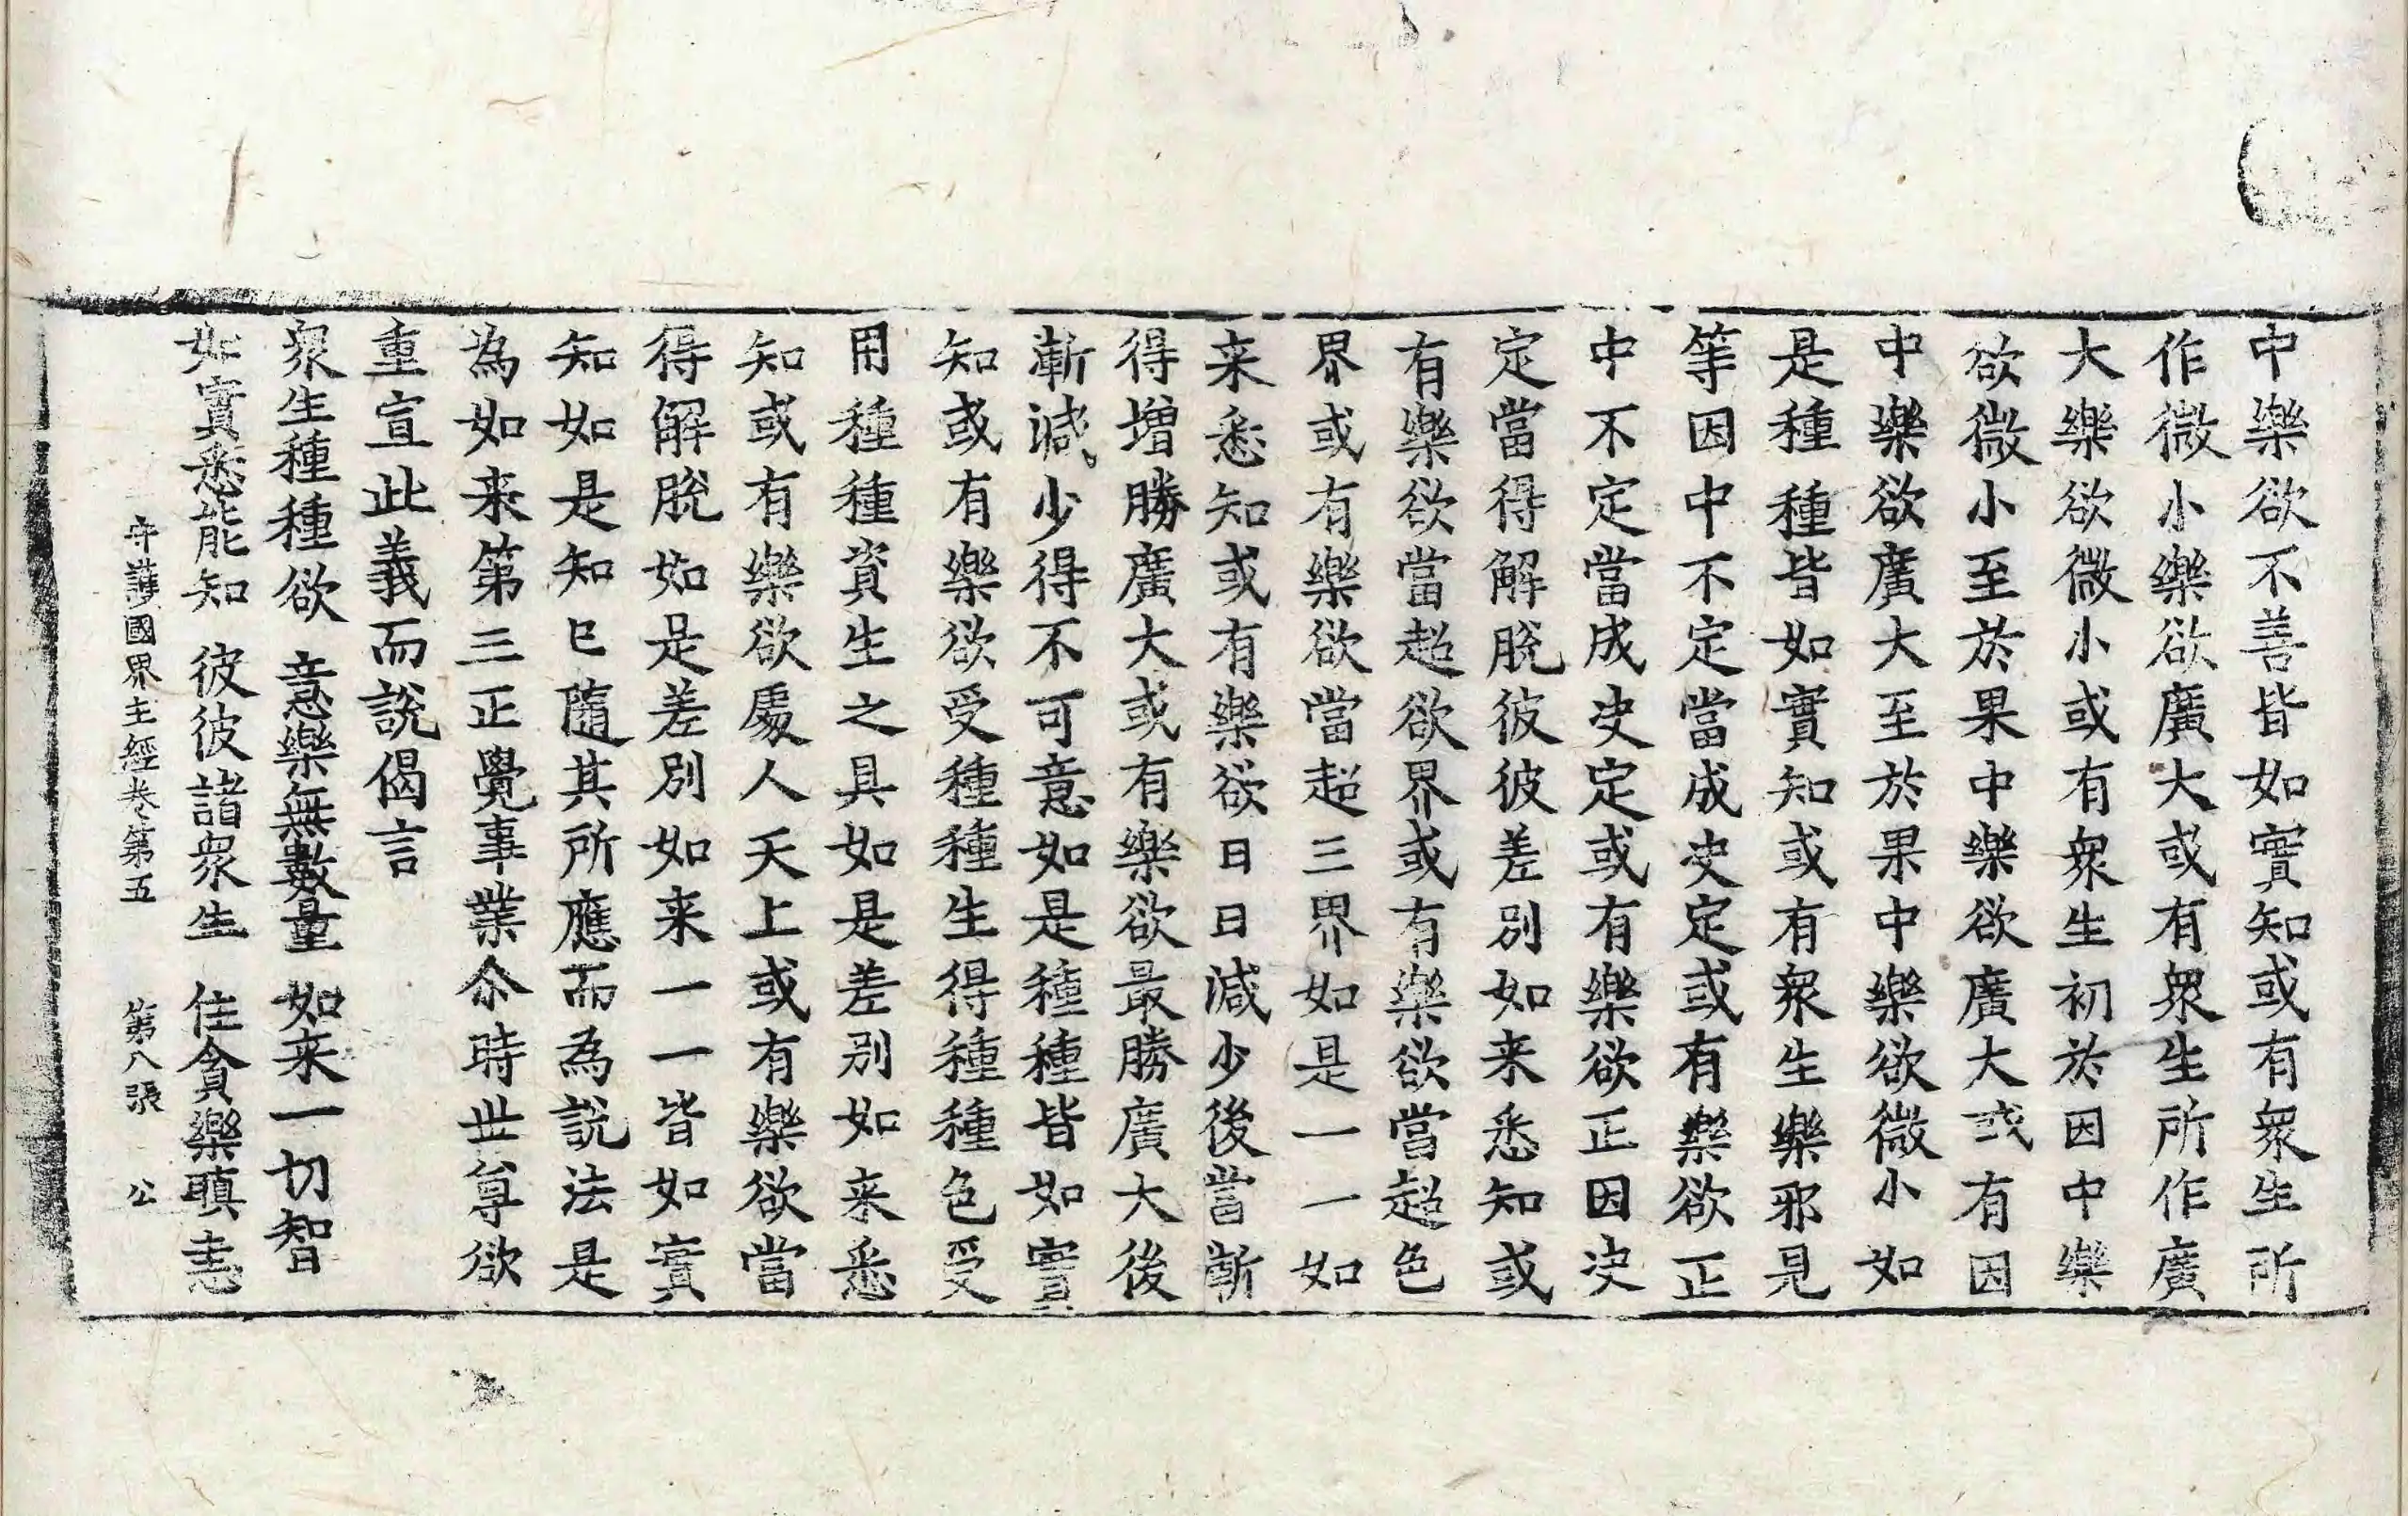 中樂欲不善皆如實知或有衆生所
作微小樂欲廣大或有衆生所作廣
大樂欲微小或有衆生初於因中樂
欲微小至於果中樂欲廣大或有因
中樂欲廣大至於果中樂欲微小如
是種種皆如實知或有衆生樂邪見
等因中不定當成决定或有樂欲正
中不定當成决定或有樂欲正因决
定當得解脫彼彼差別如来悉知或
有樂欲當超欲界或有樂欲當超色
界或有樂欲當超三界如是一一如
来悉知或有樂欲日日減少後當漸
得增勝廣大或有樂欲最勝廣大後
漸減少得不可意如是種種皆如實
知或有樂欲受種種生得種種色受
用種種資生之具如是差別如来悉
知或有樂欲處人天上或有樂欲當
得解脫如是差別如来一一皆如實
知如是知已隨其所應而為說法是
為如来第三正覺事業尒時世尊欲
重宣此義而說偈言
衆生種種欲　意樂無數量　如来一切智
如實悉能知　彼彼諸衆生　住貪樂瞋恚
守護國界主經卷第五　第八張　公